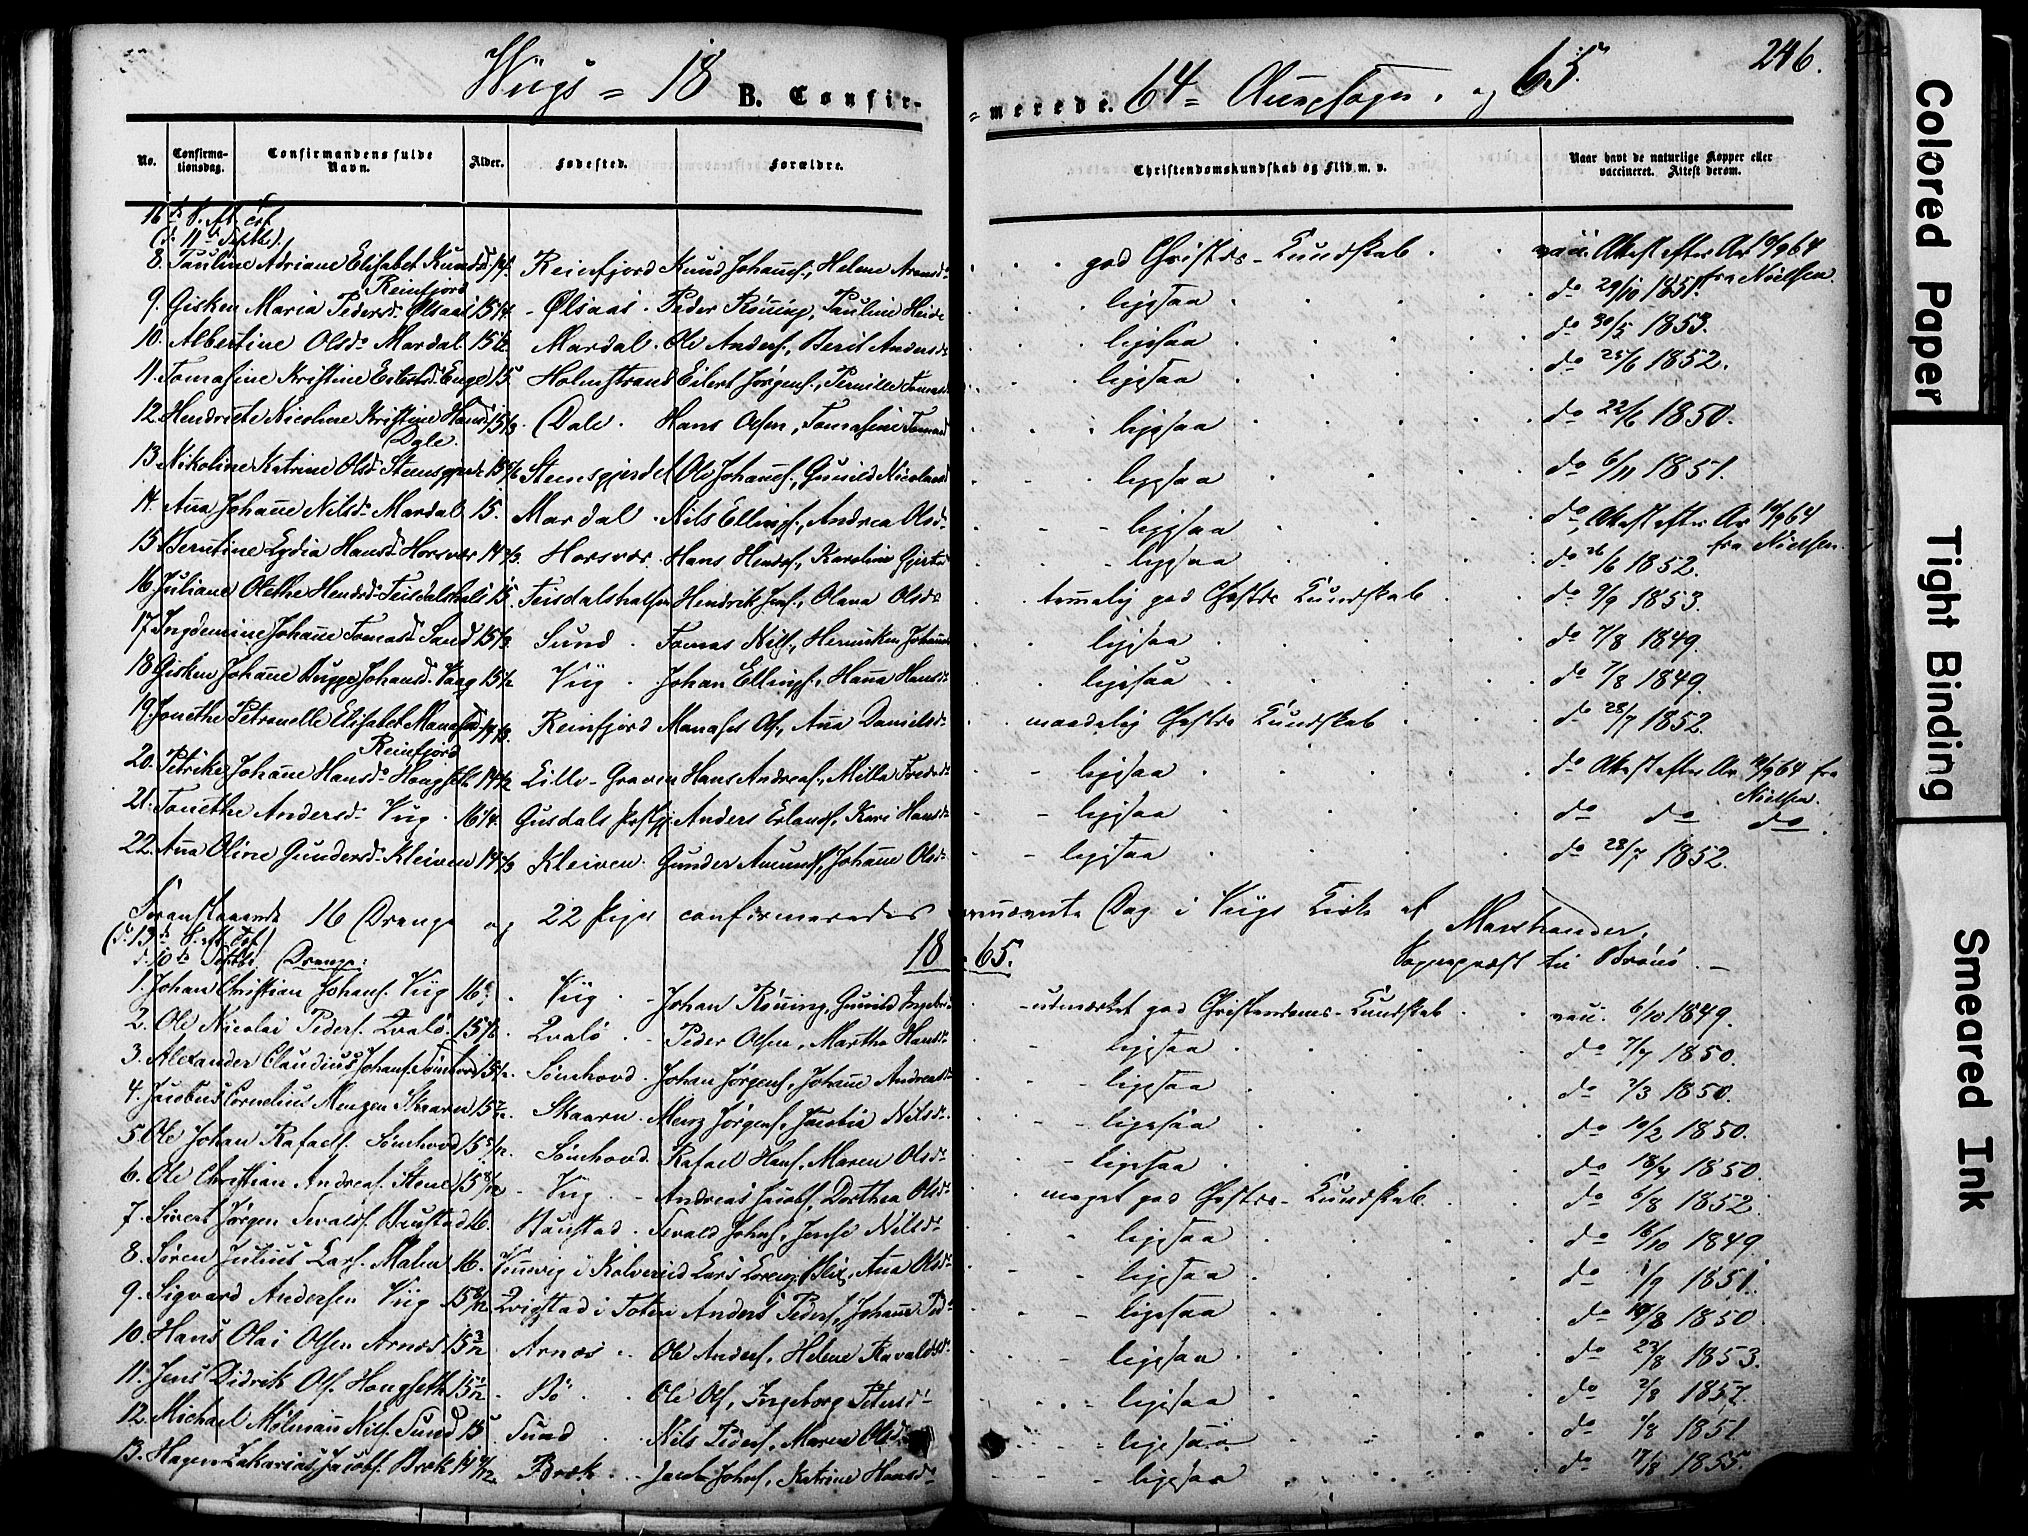 Wiigs = 18 B. Confir-
=merede. 64 = Annex Sogn. og 65. 246.
No. Confirma-tionsdag. Confirmandens fulde Navn. Alder. Fødested. Forældre. Christendomskundskab og Flid m. v. Naar havt de naturlige Kopper eller vaccineret. Attest derom.
16 d. S. Af. Tref.
(d. 11te Septbr).
8. Pauline Adriane Elisabet Knudsd. 14 Reinfjord Knud Johans., Helene Arensd. god Christds-Kundskab vacc. Attest efter Ar 10/9 64
Reinfjord fra Nielsen.
9. Gisken Maria Pedersd. Ølsaas 15 1/4 Ølsaas Peder Røning, Pauline Heide ligesaa do 29/10 1851.
10. Albertine Olsd. Mardal 15 1/2 Mardal Ole Anders., Berit Andersd. ligesaa do 30/5 1853.
11. Tomasine Kristine Eilertsd. Enge 15 Holmstrand Eilert Jørgens., Pernille Tomasd. ligesaa do 25/6 1852.
12. Hendricte Nicoline Kristine Hansd. 15 1/3 Dale Hans Olsen, Tomasine Tomasd. ligesaa do 22/6 1850.
Dale
13. Nikoline Katrine Olsd. Stensgjerdet 15 Stensgjerdet Ole Johans., Gunild Nicolaisd. ligesaa do 6/11 1851.
14. Ana Johane Nilsd. Mardal 15. Mardal Nils Ellings., Andrea Olsd. ligesaa do, Attest efter Ar 10/9 64
fra Nielsen.
15. Berntine Lydia Hansd. Horsvær 14 2/3 Horsvær Hans Hends., Karoline Gjertsd. ligesaa do 26/6 1852.
16. Juliane Olethe Hendsd. Teisdalshals 15. Teisdalshalsen Hendrik Jens., Olava Olsd. temmelig god Christds Kundskab do 9/9 1853.
17. Ingdemine Johane Tomasd. Sund 15 1/3 Sund Tomas Nils., Hermiken Johansd. ligesaa do 7/8 1849.
18. Gisken Johane Bugge Johansd. Vaag 15 1/2 Viig Johan Ellings., Hana Hansd. ligesaa do 7/8 1849.
19. Jonethe Petronelle Elisabet Manasesd. 14 Reinfjord Manases Ols., Ana Danielsd. maadelig Christds Kundskab do 28/7 1852.
Reinfjord
20. Petrikke Johane Hansd. Hongseth 14 1/2 Lille-Graven Hans Andreas., Milla Fredsd. ligesaa do Attest efter Ar 10/9 64 fra
Nielsen.
21. Tonethe Andersd. Viig 16 1/4 Gusdals Præstgj. Anders Erlands., Kari Hansd. ligesaa do do do
22. Ana Oline Gundersd. Kleiven 14 2/3 Kleiven Gunder Amunds., Johane Olsd. ligesaa do 28/7 1852.
Foranstaaende 16 Drenge og 22 Piger confirmeredes ommeldte Dag i Viigs Kirke af
Marstrander,
Sognepræst til Brønø
(d. 13de S. Af. Tref.)
d. 10de Septbr. Drenge: 18 65.
1. Johan Christian Johans. Viig 16 Viig Johan Røning, Gunild Ingebrigtsd. udmærket god Christendoms-Kundskab vacc. 6/10 1849.
2. Ole Nicolai Peders. Kvalø 15 Kvalø Peder Olsen, Martha Hansd. ligesaa do 7/7 1850.
3. Alexander Claudius Johans. Sømhovd 15 Sømhovd Johan Jørgens., Johane Andreasd. ligesaa do 7/3 1850.
4. Jacobus Cornelius Menzen Skaarn 15 Skaarn Menz Jørgens., Jacobia Nilsd. ligesaa do 10/2 1850.
5. Ole Johan Rafaels. Sømhovd 15 5/12 Sømhovd Rafael Hans., Maren Olsd. ligesaa do 18/7 1850.
6. Ole Christian Andreas. Stene 15 8/12 Viig Andreas Jacobs., Dorthea Olsd. meget god Christds-Kundskab do 6/8 1852.
7. Sivert Jørgen Sevalds. Baustad 16. Baustad Sevald Johns., Jensé Nilsd. ligesaa do 16/10 1849.
8. Søren Julius Lars. Malm 16. Vennevig i Kolvereid Lars Lorenz Blix, Ana Olsd. ligesaa do 1/9 1851.
9. Sigvard Andersen Viig 15 8/12 Kvigstad i Toten Anders Peders., Johane Pedsd. ligesaa do 10/8 1850.
10. Hans Olai Olsen Arnøs 15 3/12 Arnøs Ole Anders., Helene Ravaldsd. ligesaa do 23/8 1853.
11. Jens Didrik Ols. Hongseth 15 Bö Ole Ols., Ingeborg Petersd. ligesaa do 2/8 1857.
12. Michael Mølmann Nils. Sund 15 Sund Nils Peders., Maren Olsd. ligesaa do 7/8 1851
13. Hagen Zakarias Jacobs. Bræk 14 Bræk Jacob Johns., Katrine Hansd. ligesaa do 17/8 1855.
Colored Paper
Tight Binding
Smeared Ink